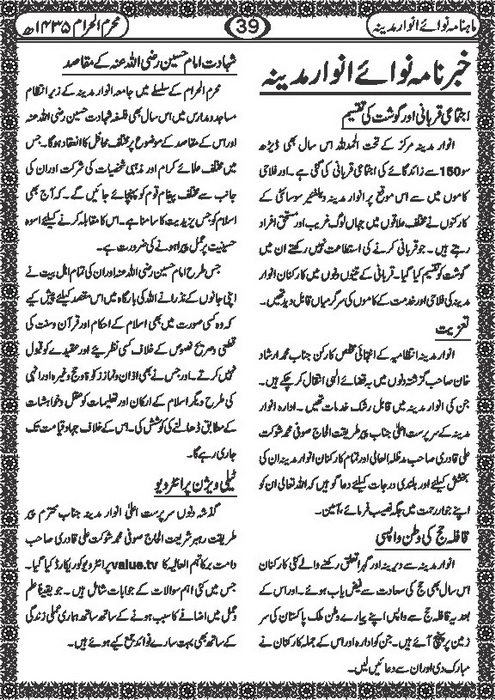 ماہنامہ نوائے انوار مدینہ
39
محرم الحرام ۱۴۳۵ھ
خبرنامہ نوائے انوار مدینہ
اجتماعی قربانی اور گوشت کی تقسیم
انوار مدینہ مرکز کے تحت الحمدللہ اس سال بھی ڈیڑھ
سو 150 سے زائد گائے کی اجتماعی قربانی کی گئی ہے۔ اور فلاحی
کاموں میں سے اس موقع پر انوار مدینہ ویلفیئر سوسائٹی کے
کارکنوں نے مختلف علاقوں میں جہاں لوگ غریب اور مستحق افراد
رہتے ہیں۔ جو قربانی کرنے کی استطاعت نہیں رکھتے ان میں
گوشت کو تقسیم کیا گیا۔ قربانی کے تینوں دنوں میں کارکنان انوار
مدینہ کی فلاحی اور خدمت کے کاموں کی سرگرمیاں قابل دید تھیں۔
تعزیت
انوار مدینہ انتظامیہ کے انتہائی مخلص کارکن جناب محمد ارشاد
خان صاحب گزشتہ دنوں میں بہ قضائے الٰہی انتقال کر چکے ہیں۔
جن کی انوار مدینہ میں قابل رشک خدمات تھیں۔ ادارہ انوار
مدینہ کے سرپرست اعلیٰ جناب پیر طریقت الحاج صوفی محمد شوکت
علی قادری صاحب مدظلہ العالی اور تمام کارکنان انوار مدینہ ان کی
بخشش کیلئے اور بلندی درجات کیلئے دعا گو ہیں کہ اللہ تعالی ان کو
اپنے جوار رحمت میں جگہ نصیب فرمائے، آمین۔
قافلہ حج کی وطن واپسی
انوار مدینہ سے دیرینہ اور گہرا تعلق رکھنے والے کئی کارکنان
اس سال بھی حج کی سعادت سے فیض یاب ہوئے۔ اور اس کے
بعد یہ قافلہ حج سے واپس اپنے پیارے وطن ملک پاکستان کی سر
زمین پر پہنچ آئے ہیں۔ جن کو ادارہ اور اس کے جملہ کارکنان نے
مبارک دی اور ان سے دعائیں لیں۔
شہادت امام حسین رضی اللہ عنہ کے مقاصد
محرم الحرام کے سلسلے میں جامعہ انوار مدینہ کے زیر انتظام
مساجد و مدارس میں اس سال بھی فلسفہ شہادت حسین رضی اللہ عنہ
اور اس کے مقاصد کے موضوع پر مختلف محافل کا انعقاد ہوگا۔ جس
میں مختلف علمائے کرام اور مذہبی شخصیات کی شرکت اور ان کی
جانب سے مختلف پیغام قوم کو پہنچائے جائیں گے۔ کہ آج بھی
اسلام کو جس یزیدیت کا سامنا ہے۔ اس کا مقابلہ کرنے کیلئے اسوہ
حسینیت پر عمل پیرا ہونے کی ضرورت ہے۔
جس طرح امام حسین رضی اللہ عنہ اور ان کی تمام اہل بیت نے
اپنی جانوں کے نذرانے اللہ کی بارگاہ میں اس مقصد کیلئے پیش کیے
کہ وہ کسی صورت میں بھی اسلام کے احکام اور قرآن و سنت کی
قطعی و صریح نصوص کے خلاف کسی نظریئے اور عقیدے کو قبول
نہیں کرتے۔ اور جس نے بھی اذان و نماز و زکوٰۃ و حج وغیرہ اور انہی
کی طرح دیگر اسلام کے ارکان اور تعلیمات کو عقل و خواہشات
کے مطابق ڈھالنے کی کوشش کی۔ اس کے خلاف جہاد قیامت تک
جاری رہے گا۔
ٹیلی ویژن پر انٹرویو
گذشتہ دنوں سرپرست اعلیٰ انوار مدینہ جناب محترم پیر
طریقت رہبر شریعت الحاج صوفی محمد شوکت علی قادری صاحب
دامت برکاتہم العالیہ کا value.tv پر انٹرویو کو ریکارڈ کیا گیا۔
جس میں کئی اہم سوالات کے جوابات شامل ہیں۔ جو یقیناً علم
و عمل میں اضافے کا سبب ہونے کے ساتھ ساتھ ہماری عملی زندگی
کے ساتھ بھی بہت سارے فوائد جمع کیے ہوئے ہیں۔